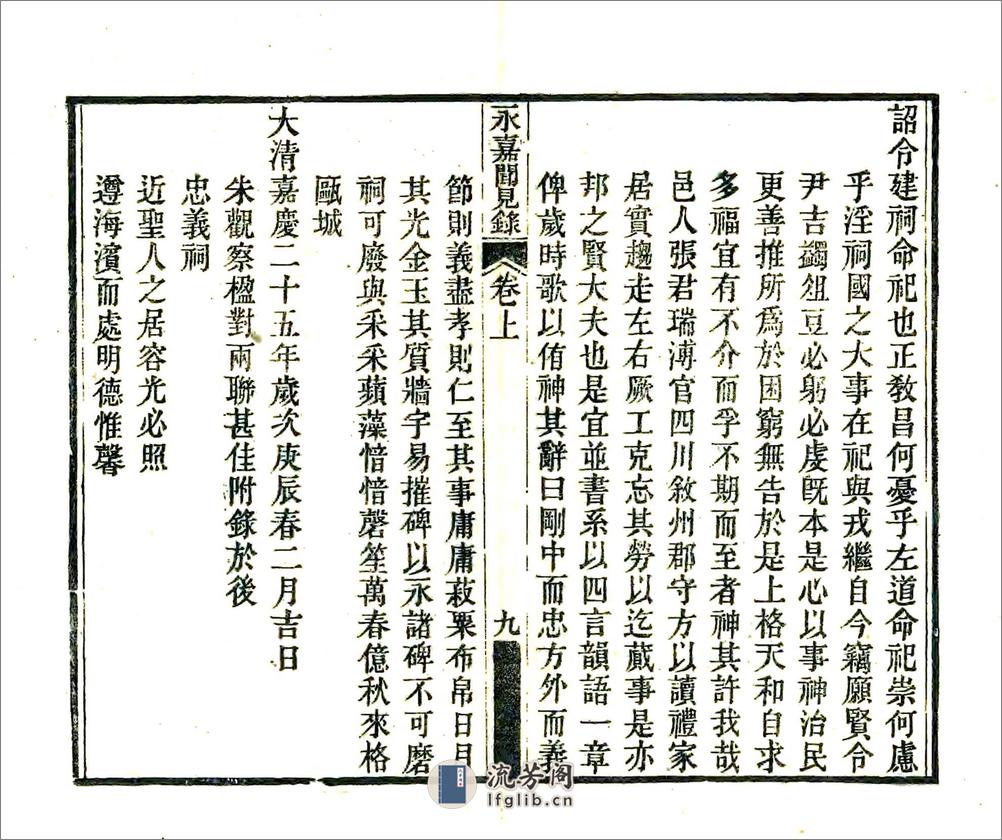 詔令建祠命祀也正教昌何憂乎左道命祀崇何慮
乎淫祠國之大事在祀與戎繼自今竊願賢令
尹吉蠲俎豆必躬必虔旣本是心以事神治民
更善推所爲於困窮無告於是上格天和自求
多福宜有不介而孚不期而至者神其許我哉
邑人張君瑞溥官四川敘州郡守方以讀禮家
居實趨走左右厥工克忘其勞以迄蕆事是亦
邦之賢大夫也是宜並書系以四言韻語一章
俾歲時歌以侑神其辭曰剛中而忠方外而義
永嘉聞見錄
卷上
九
節則義盡孝則仁至其事庸庸菽粟布帛日月
其光金玉其質牆宇易摧碑以永諸碑不可磨
祠可廢與采采蘋藻愔愔磬笙萬春億秋來格
甌城
大清嘉慶二十五年歲次庚辰春二月吉日
朱觀察楹對兩聯甚佳附錄於後
忠義祠
近聖人之居容光必照
遵海濱而處明德惟馨
流芳阁
lfglib.cn